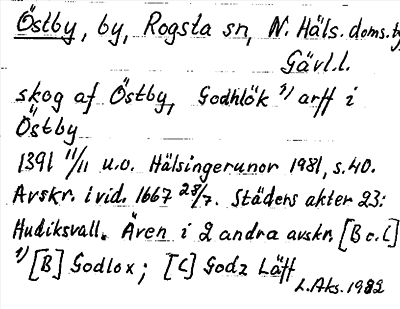 Östby, by, Rogsta sn, N. Häls. doms.
Gävl.l.
skog af Östby, Godhlök 1) arff i
Östby
1391 11/11 u.o. Hälsingerunor 1981, s.40.
Avskr. i vid. 1667 28/7. Städers akter 23:
Hudiksvall. Även i 2 andra avskr. [B o. C]
1) [B] Godlox; [C] Godz Läff
L.Aks. 1982